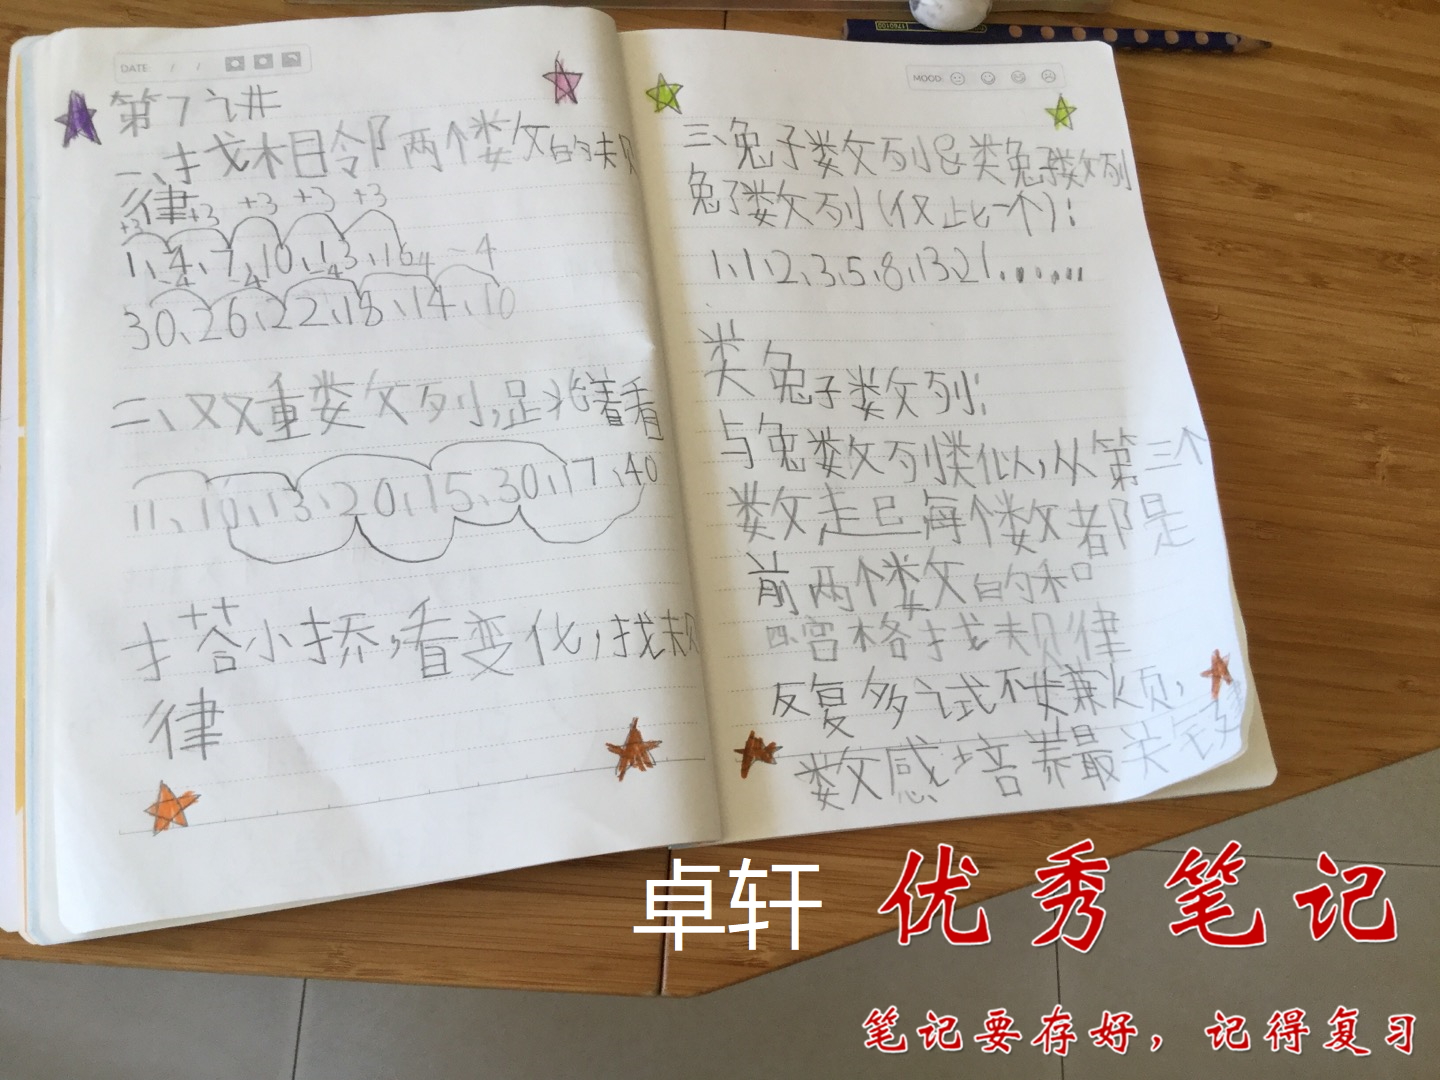 DATE: / /
第7讲
一、找相邻两个数的规
律
+3 +3 +3 +3 +3
1、4、7、10、13、16
-4 -4 -4 -4 -4
30、26、22、18、14、10
二、双重数列,跳着看
11、10、13、20、15、30、17、40
搭小桥,看变化,找规
律
MOOD:
三、兔子数列&类兔子数列
兔子数列(仅此一个):
1、1、2、3、5、8、13、21、......
类兔子数列:
与兔数列类似,从第三个
数起每个数都是
前两个数的和
四、宫格找规律
反复多试不嫌烦,
数感培养最关键
卓轩
优秀笔记
笔记要存好,记得复习